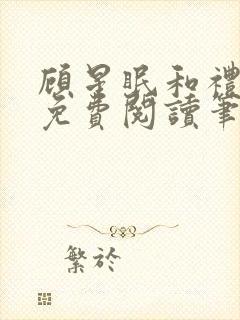 顧星眠和禮
免費閱讀筆
繁於